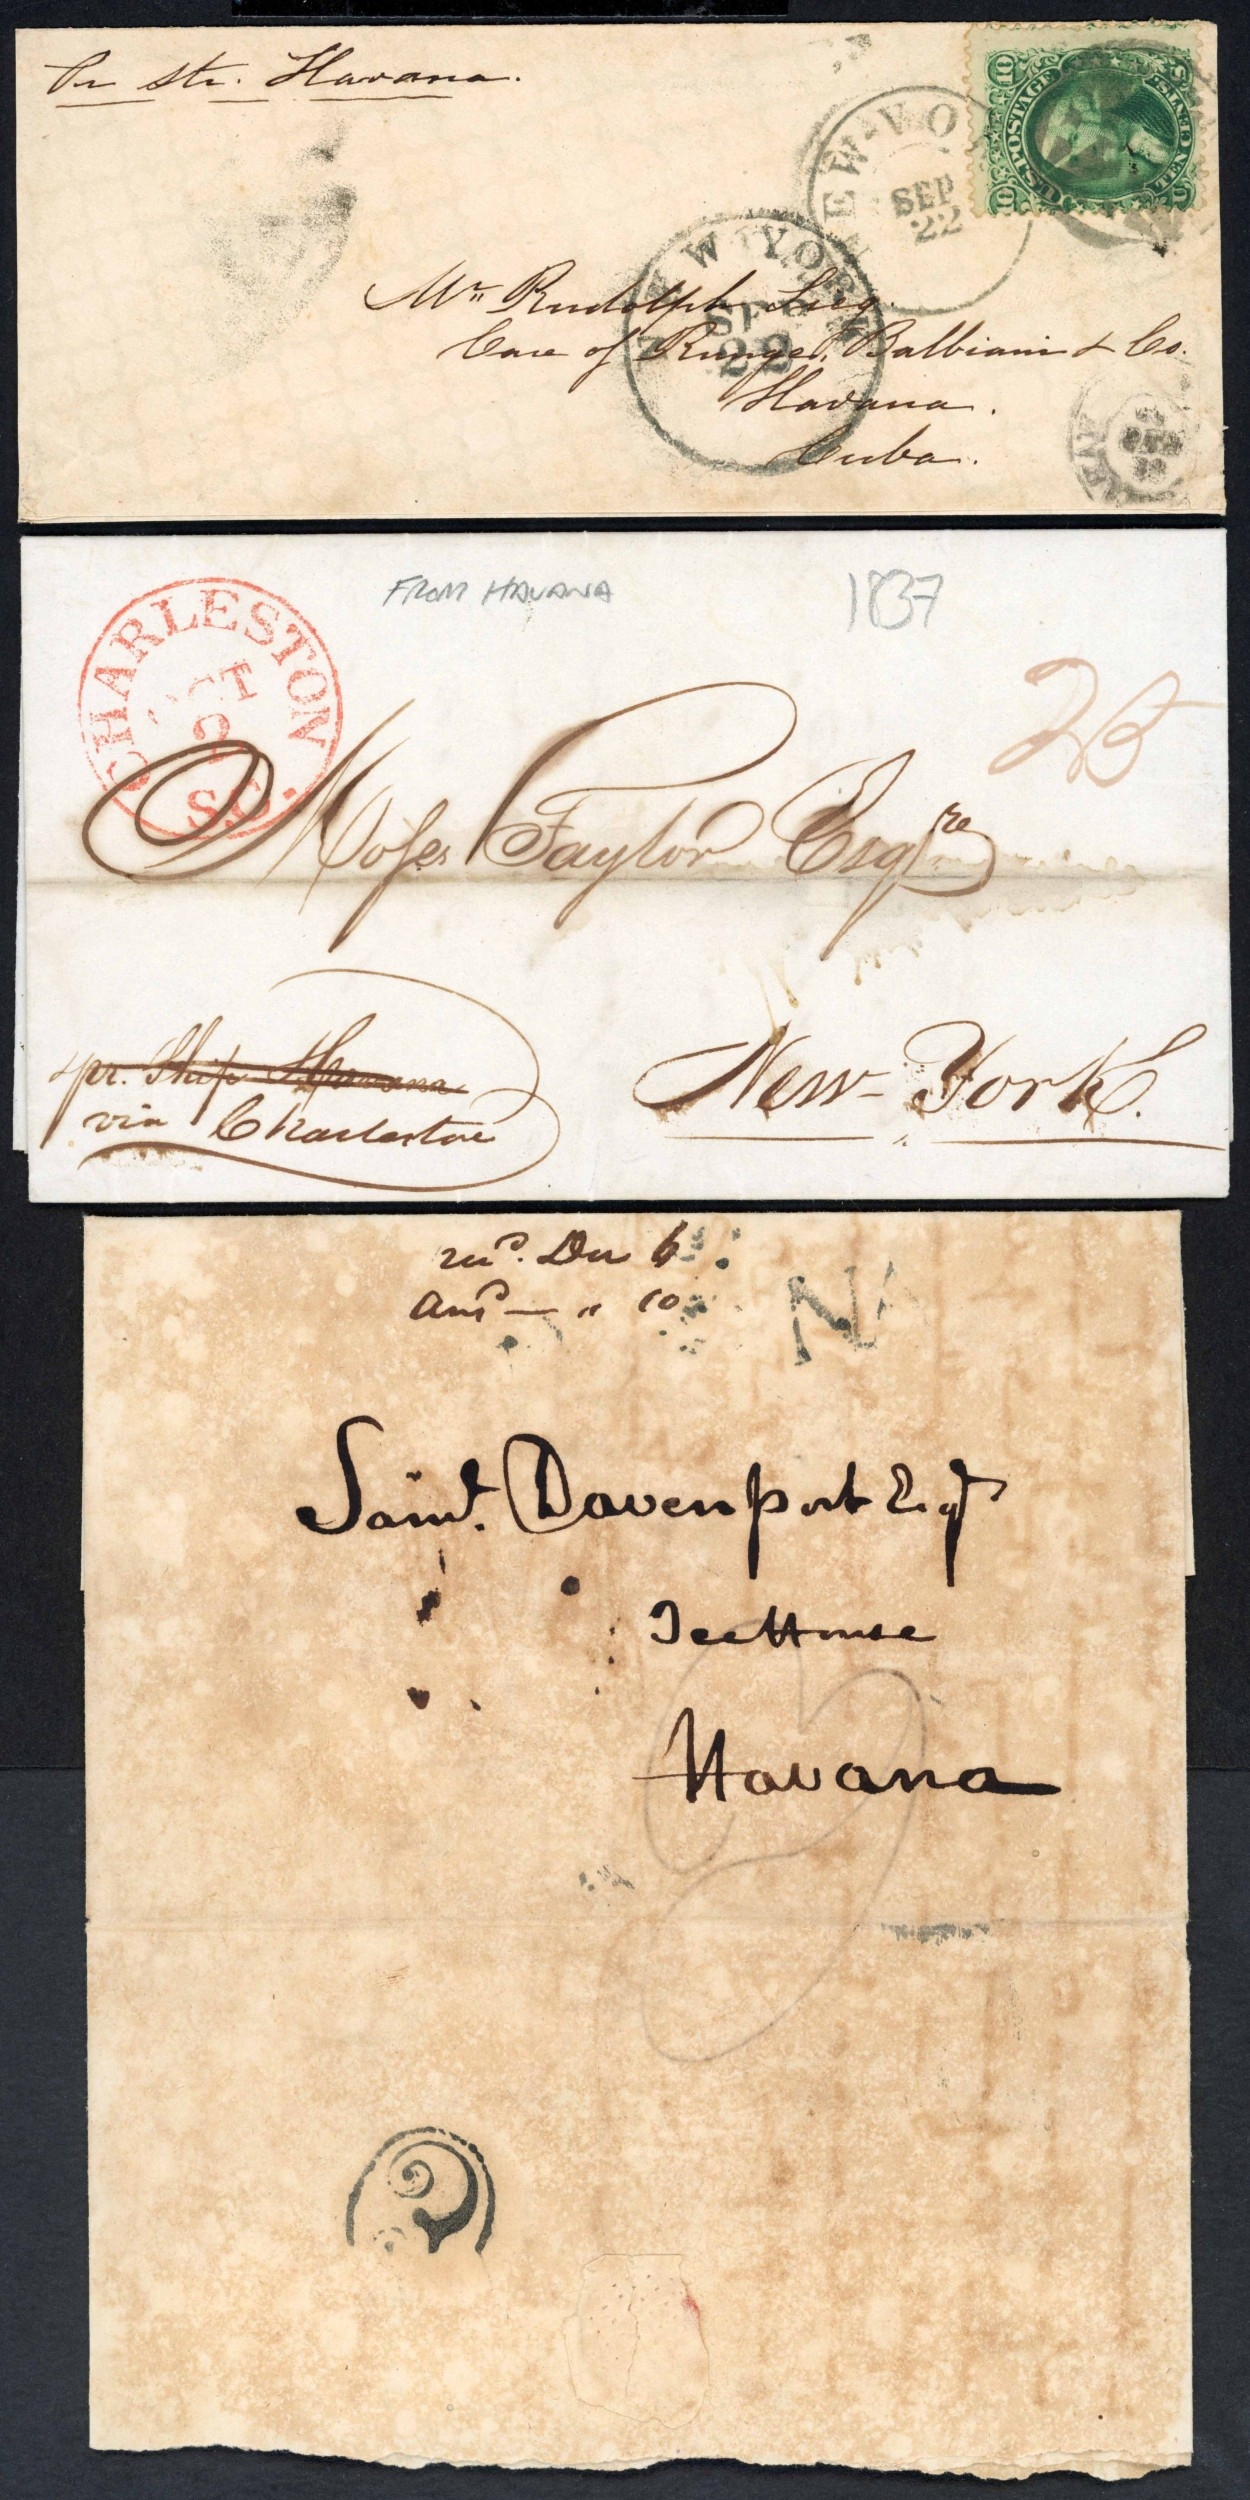 Pr Str. Havana.
U.S. POSTAGE
TEN CENTS.
10 10
NEW-YO
SEP
22
NEW YORK
SEP
22
Mr Rudolph
Care of Runge, Balbiani & Co.
Havana.
Cuba.
FROM HAVANA
1837
CHARLESTON
OCT
S.C.
Moses Taylor Esqre
pr. Ship Havana
via Charleston
New-York.
recd. Dec 6
Ansd — " 10
NA
Saml. Davenport Esqr
Ice House
Havana
2